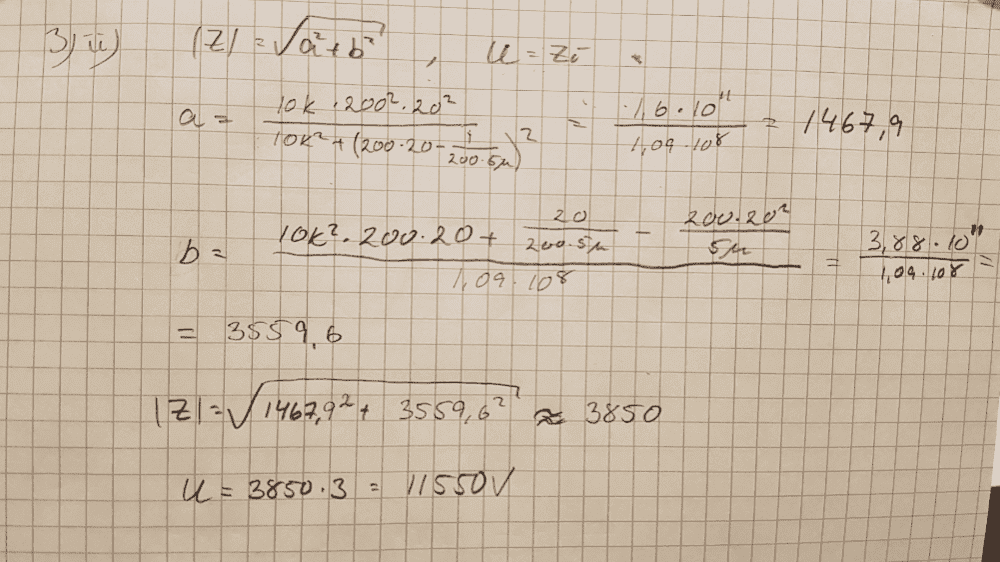 3) ii) |Z| = √(a² + b²) , U = Zi
a = (10k · 200² · 20²) / (10k² + (200·20 − 1/(200·5μ))²) = (1,6 · 10¹¹) / (1,09 · 10⁸) = 1467,9
b = (10k² · 200 · 20 + 20/(200·5μ) − (200·20²)/(5μ)) / (1,09 · 10⁸) = (3,88 · 10¹¹) / (1,09 · 10⁸) =
= 3559,6
|Z| = √(1467,9² + 3559,6²) ≈ 3850
U = 3850 · 3 = 11550V